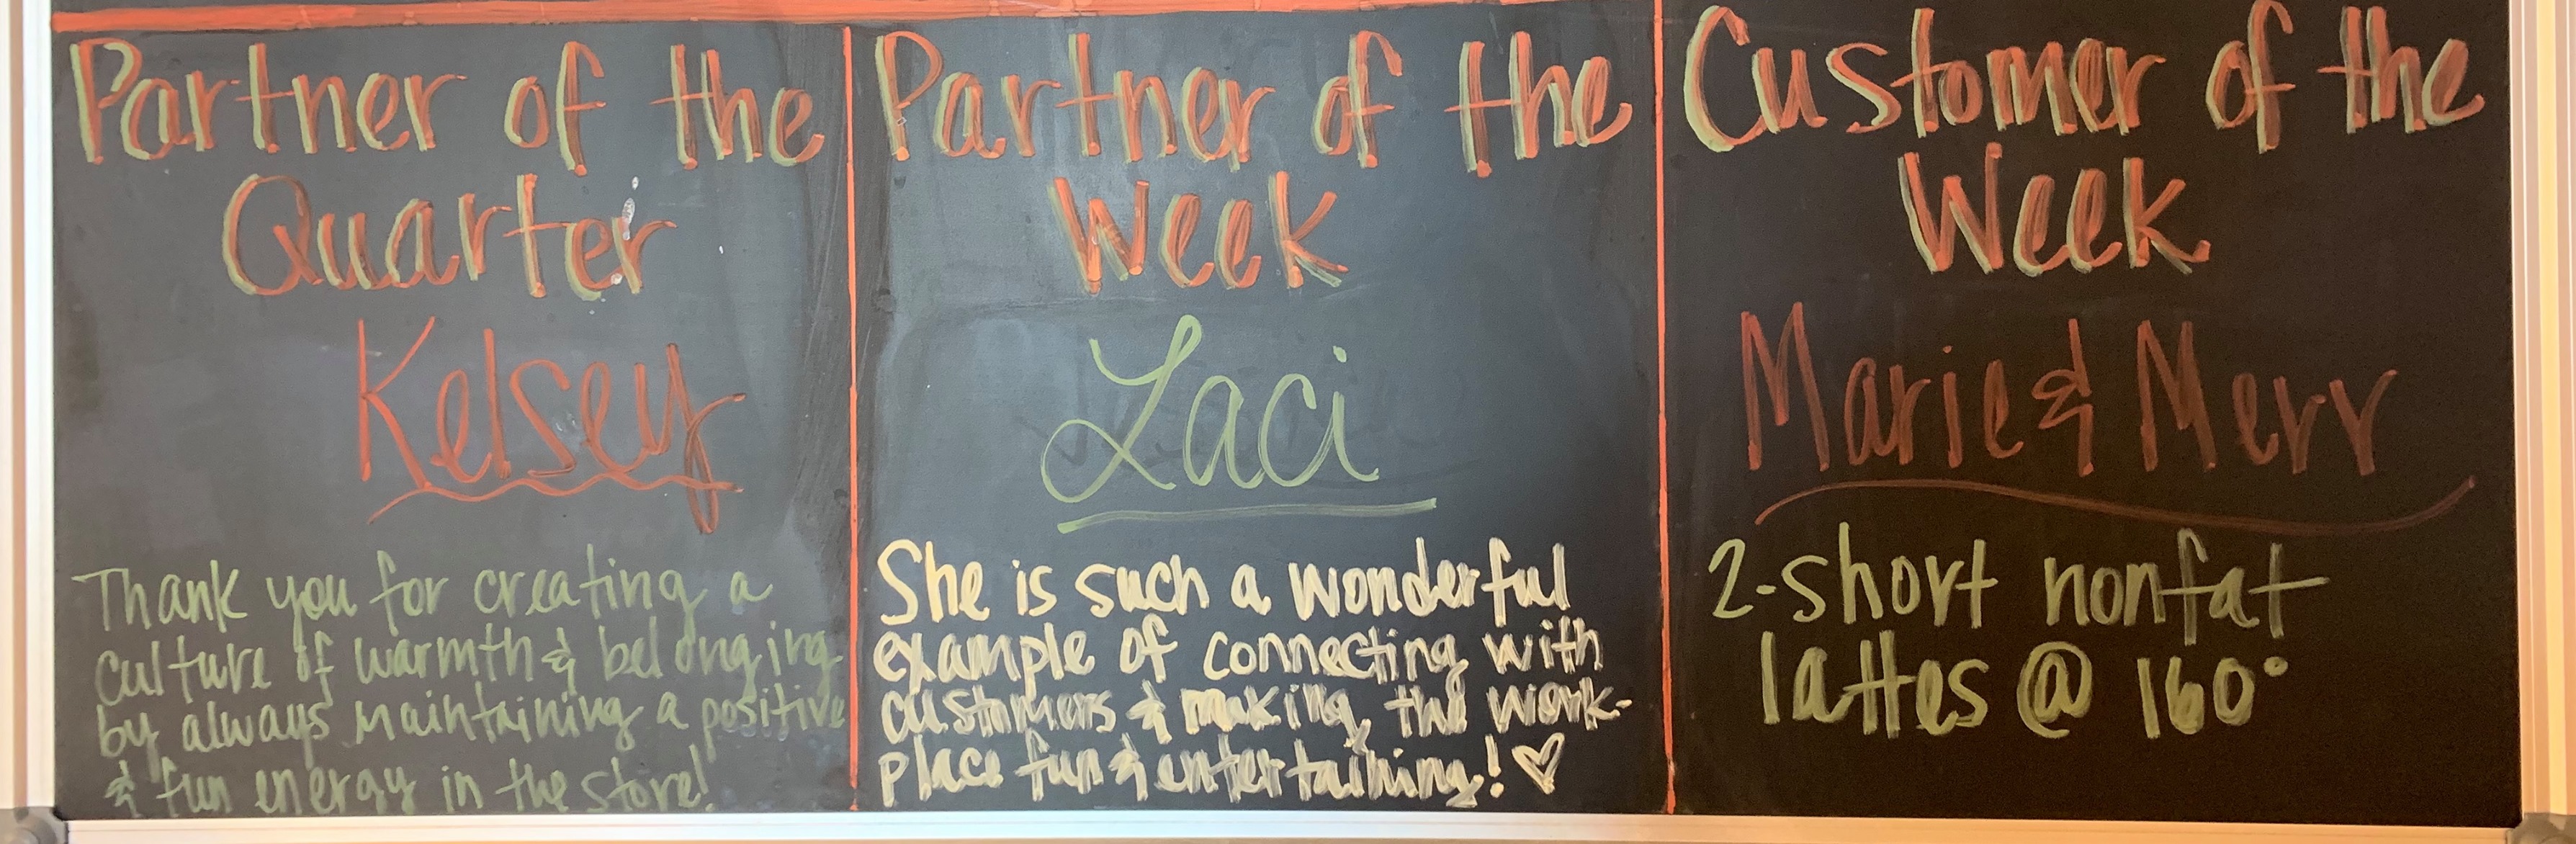 Partner of the
Quarter
Kelsey
Thank you for creating a
culture of warmth & belonging
by always maintaining a positive
& fun energy in the store!
Partner of the
Week
Laci
She is such a wonderful
example of connecting with
customers & making the work-
place fun & entertaining! ♡
Customer of the
Week
Marie & Merr
2-short nonfat
lattes @ 160°